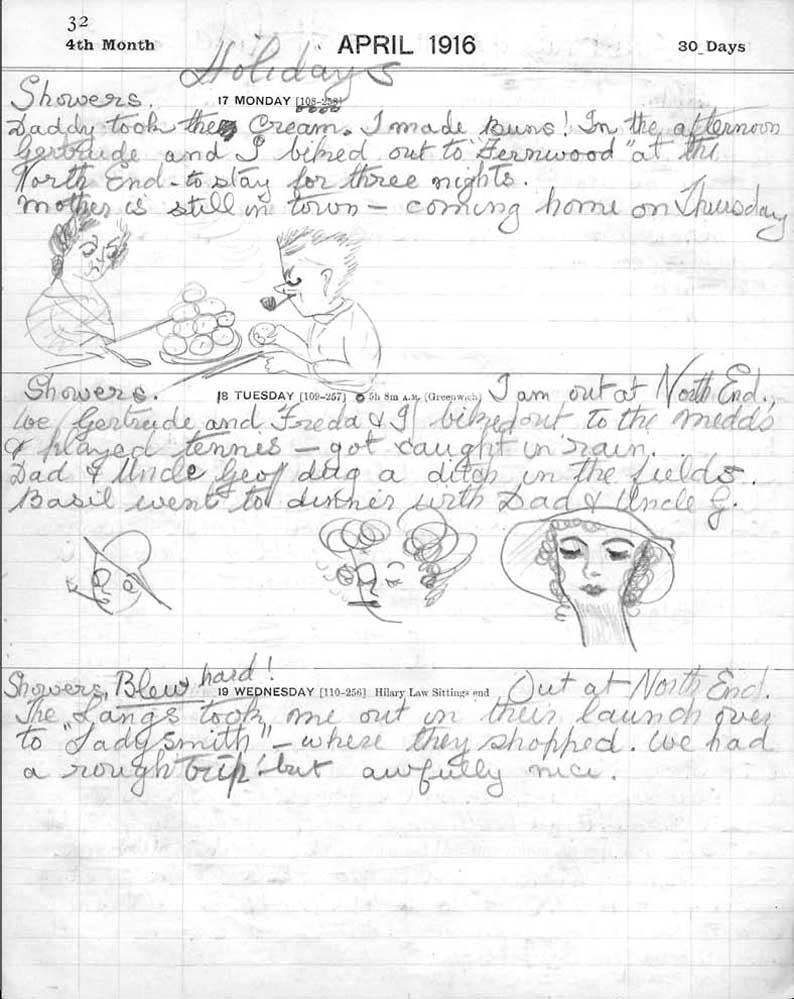 32
4th Month APRIL 1916 30 Days
Holidays
Showers. 17 MONDAY [108-258]
Daddy took the Cream. I made Buns! In the afternoon
Gertrude and I biked out to "Fernwood" at the
North End - to stay for three nights.
Mother is still in town — coming home on Thursday
Showers. 18 TUESDAY [109-257] 5h 8m A.M. (Greenwich) I am out at North End.
We (Gertrude and Freda & I) biked out to the Medds
& played tennis — got caught in rain.
Dad & Uncle Geof dug a ditch in the fields.
Basil went to dinner with Dad & Uncle G.
Showers, Blew hard! 19 WEDNESDAY [110-256] Hilary Law Sittings end Out at North End.
The Langs took me out in their launch over
to "Ladysmith" — where they shopped. We had
a rough trip! but awfully nice.